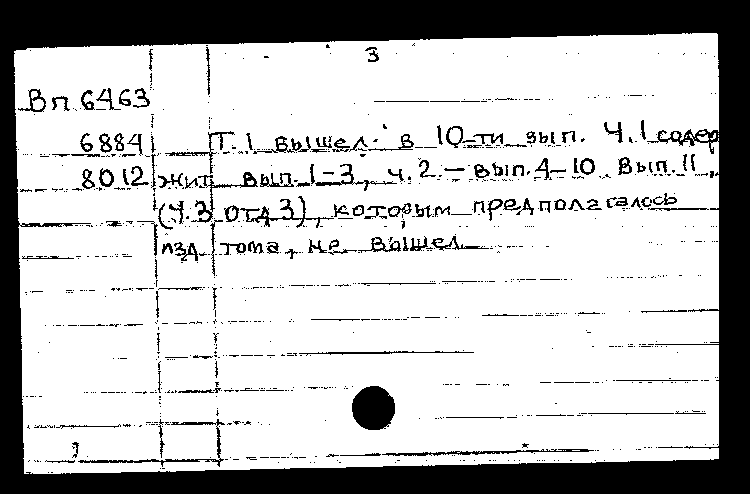 3
Вп 6463
6884 Т. 1 вышел в 10-ти вып. Ч. 1 содер
8012 жит вып. 1-3, ч. 2. - вып. 4-10. Вып. 11,
(Ч. 3, отд 3), которым предполагалось
изд тома, не вышел